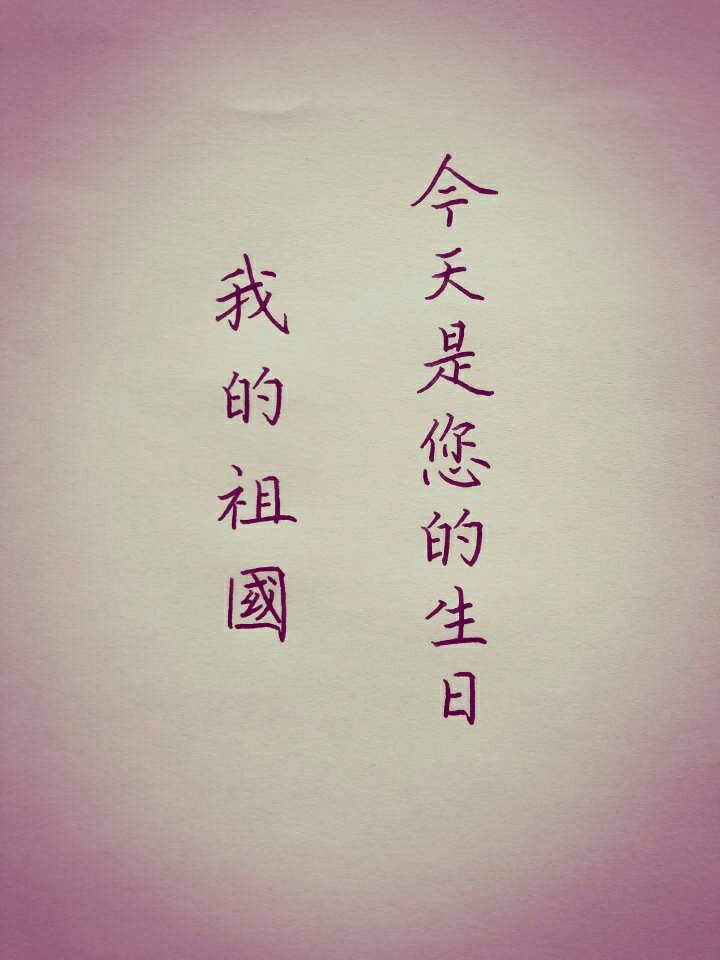 今天是您的生日
我的祖國